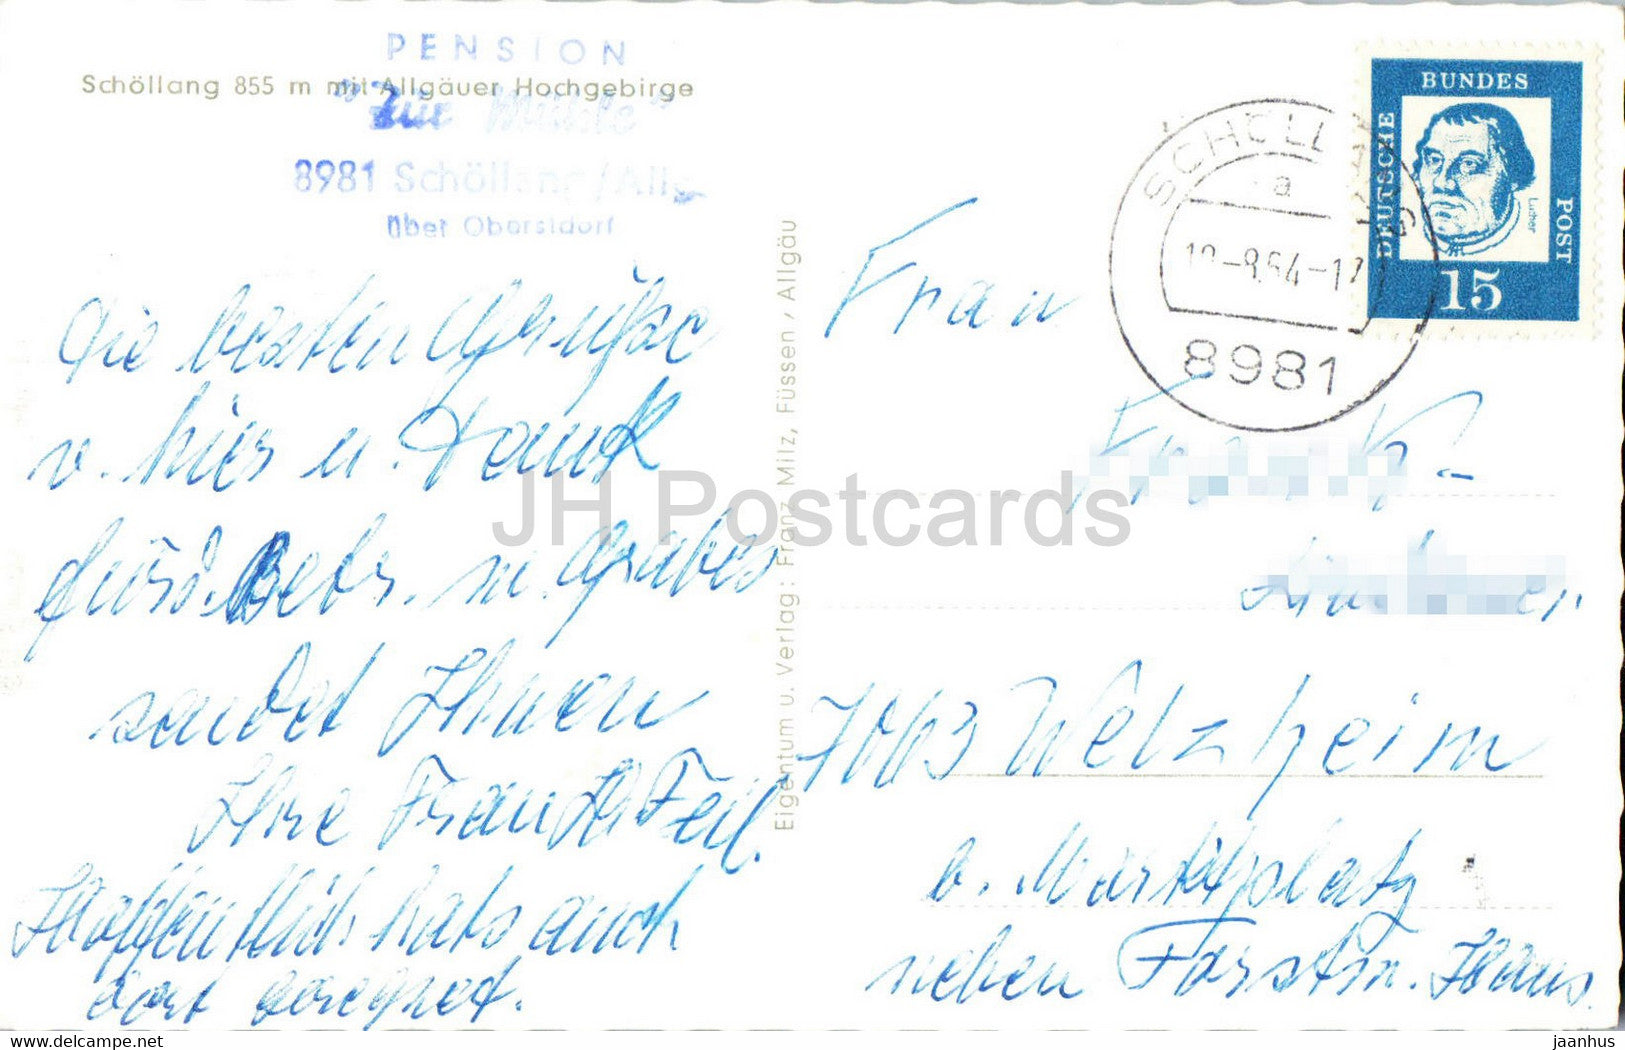 PENSION
Schöllang 855 m mit Allgäuer Hochgebirge
"Zur Mühle"
8981 Schöllang/Allg.
über Oberstdorf
BUNDES
DEUTSCHE
POST
Luther
15
SCHÖLLANG
a
-8.64-17
8981
Die besten Grüsse
v. hier u. Dank
für d. Betr. m. Grabes
sendet Ihnen
Ihre Frau Feil.
Hoffentlich hats auch
dort geregnet.
Eigentum u. Verlag: Franz Milz, Füssen / Allgäu
Frau
7063 Welzheim
b. Marktplatz
neben Forstm. Haus.
JH Postcards
www.delcampe.net
jaanhus